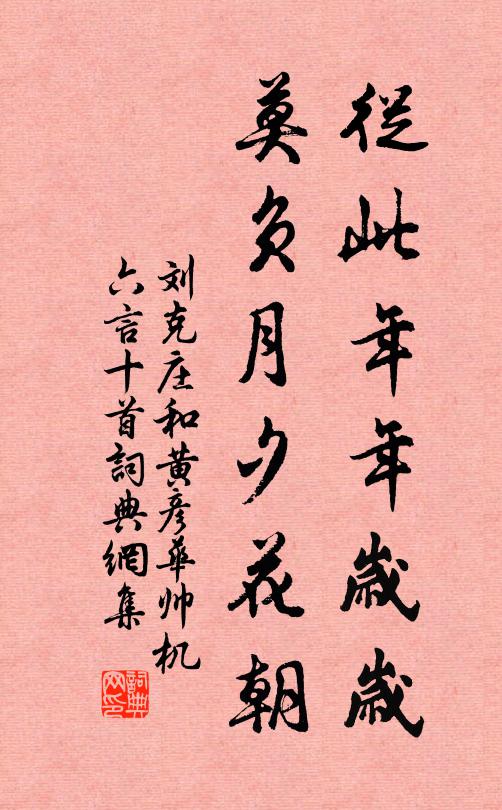 從此年年歲歲
莫负月夕花朝
刘克庄和黄彦華帅机
六言十首詞典網集
詞典网印